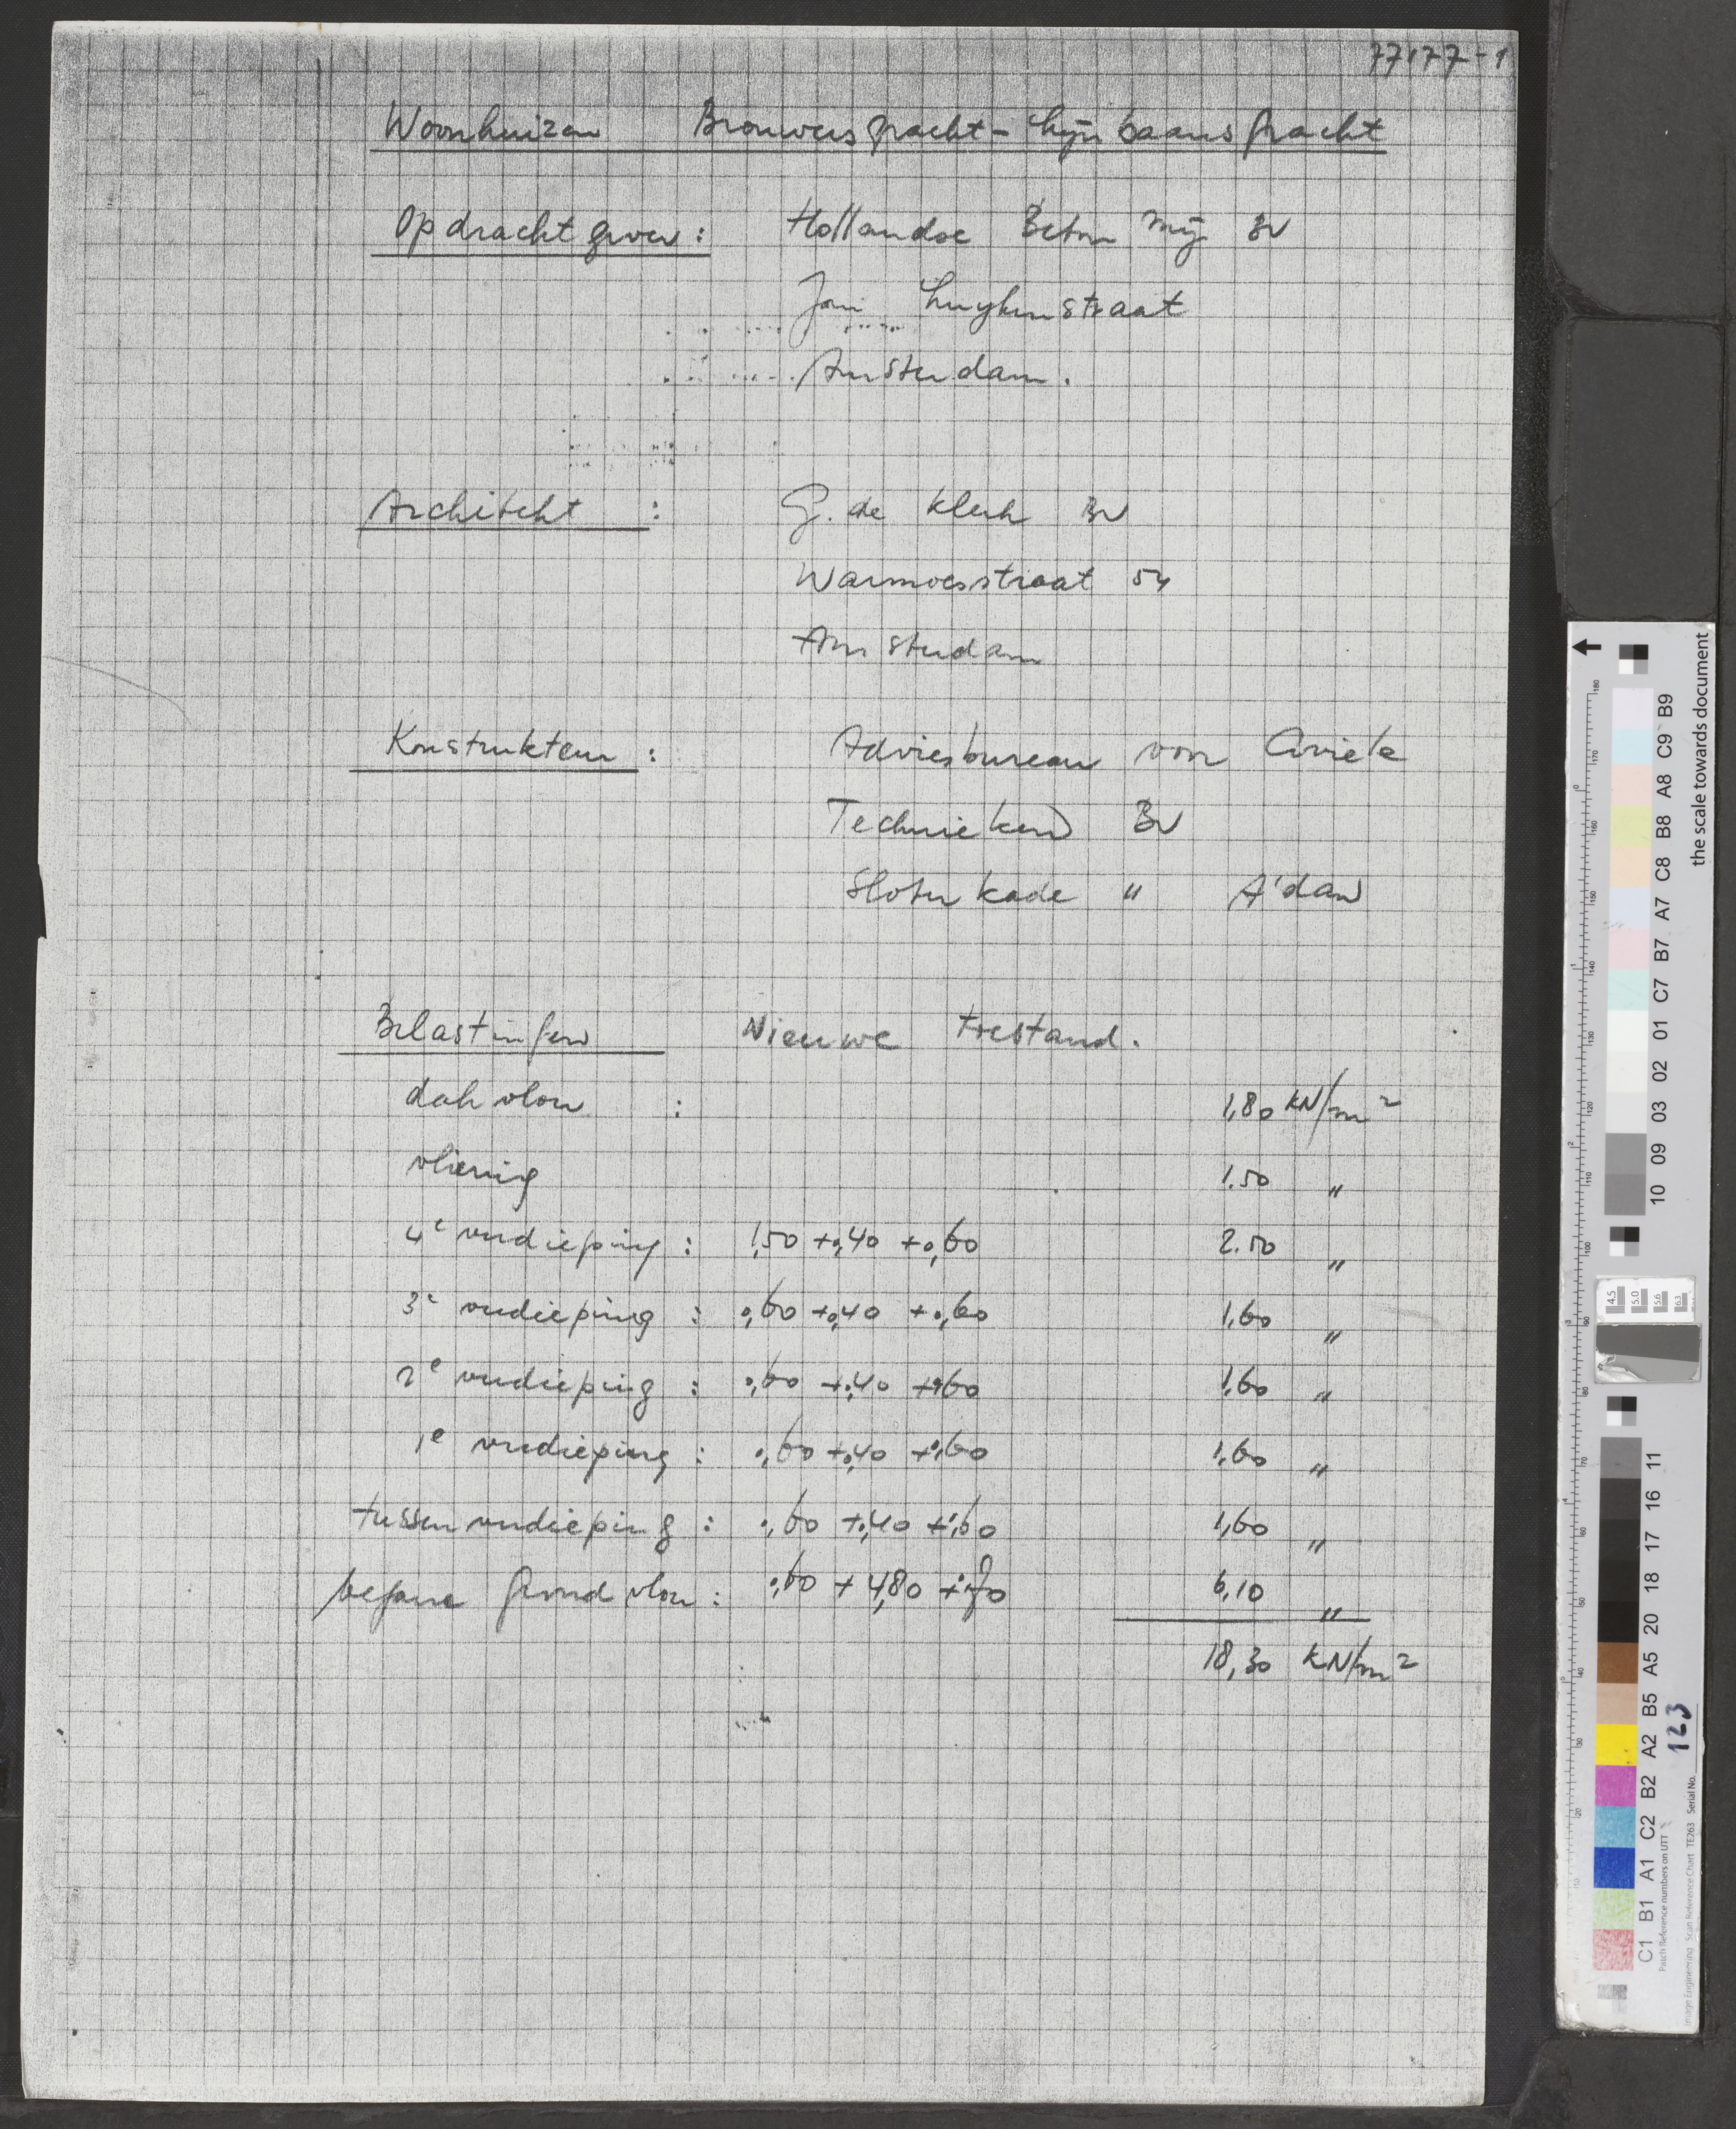 77177-1
Woonhuizen Brouwersgracht - Lijnbaansgracht
Opdrachtgever : Hollandse Beton Mij BV
Jan Luykenstraat
Amsterdam.
Architekt : G. de Klerk BV
Warmoesstraat 54
Amsterdam
Konstrukteur : Adviesbureau voor Civiele
Technieken BV
Sloterkade " A'dam
Belastingen Nieuwe toestand.
dakvloer : 1,80 kN/m²
vliering 1.50 "
4e verdieping : 1,50 + 0,40 + 0,60 2.50 "
3e verdieping : 0,60 + 0,40 + 0,60 1,60 "
2e verdieping : 0,60 + 0,40 + 0,60 1,60 "
1e verdieping : 0,60 + 0,40 + 0,60 1,60 "
tussenverdieping : 0,60 + 0,40 + 0,60 1,60 "
begane grondvloer : 0,60 + 4,80 + 0,70 6,10 "
18,30 kN/m²
the scale towards document
B9
C9
A8
B8
C8
A7
B7
C7
01
02
03
09
10
11
16
17
18
20
A5
B5
A2
B2
C2
A1
B1
C1
123
Patch Reference numbers on UTT
Image Engineering Scan Reference Chart TE263 Serial No.